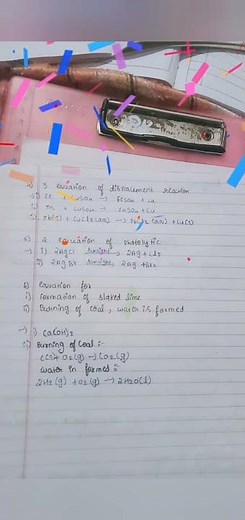 a) 3 equation of displacement reaction
Fe + CuSO4 → FeSO4 + Cu
Zn + CuSO4 → ZnSO4 + Cu
Pb(s) + CuCl2 (aq) → PbCl2 (aq) + Cu(s)
2 equation of
→ i) 2AgCl sunlight 2Ag + Cl2
ii) 2AgBr sunlight, 2Ag + Br2
Equation for
i) Formation of slaked lime
ii) Burning of coal, water is formed
→ i) Ca(OH)2
ii) Burning of coal :-
C(s) + O2(g) → CO2(g)
water is formed :-
2H2(g) + O2(g) → 2H2O(l)